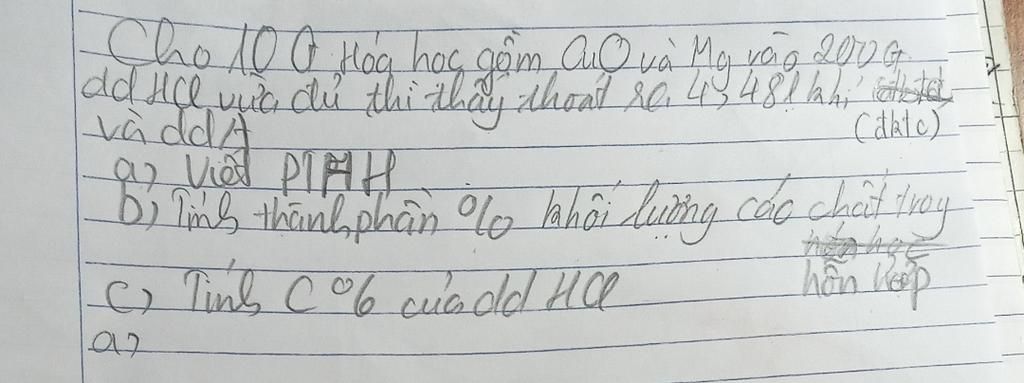 Cho 10 G Hóa học gồm CuO và Mg vào 200 G
dd HCl vừa đủ thì thấy thoát ra 4,3481 khí
và dd A (đktc)
a) Viết PTHH
b) Tính thành phần % khối lượng các chất trog
hỗn hợp
c) Tính C% của dd HCl
a)